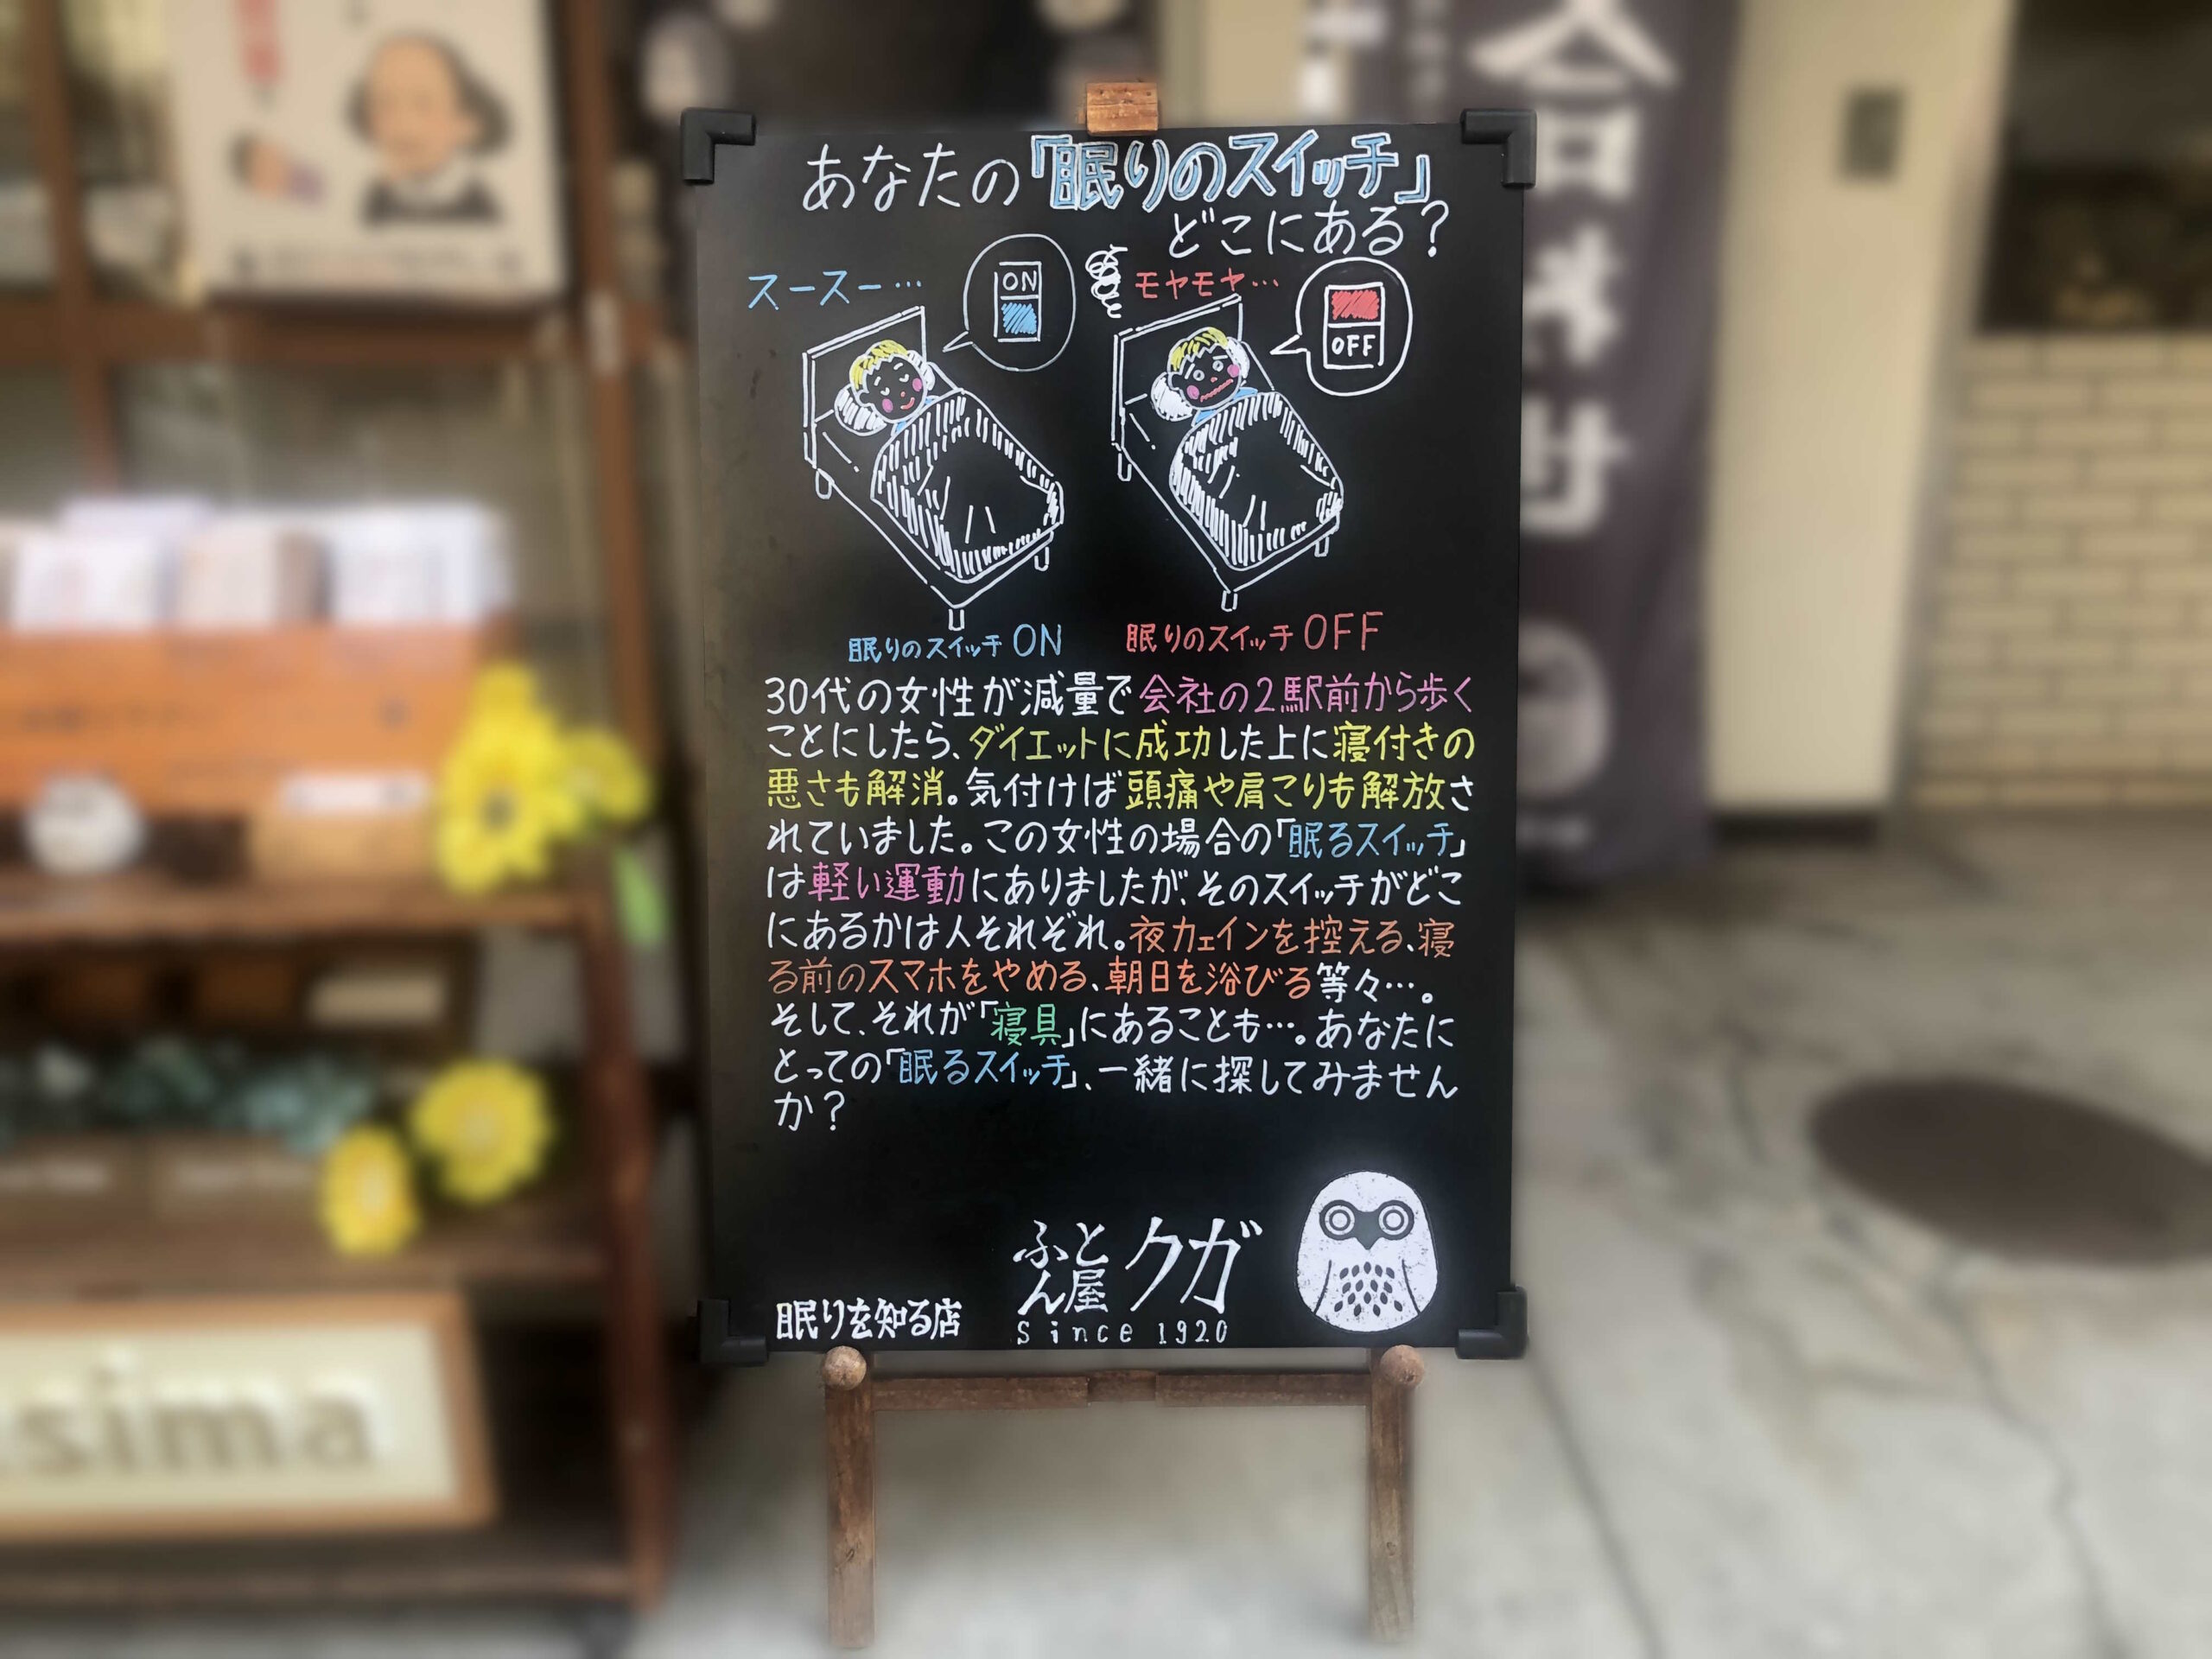 あなたの『眠りのスイッチ』
どこにある？
スースー…
ON
モヤモヤ…
OFF
眠りのスイッチON
眠りのスイッチOFF
30代の女性が減量で会社の2駅前から歩く
ことにしたら、ダイエットに成功した上に寝付きの
悪さも解消。気付けば頭痛や肩こりも解放さ
れていました。この女性の場合の「眠るスイッチ」
は軽い運動にありましたが、そのスイッチがどこ
にあるかは人それぞれ。夜カフェインを控える、寝
る前のスマホをやめる、朝日を浴びる等々…。
そして、それが「寝具」にあることも…。あなたに
とっての「眠るスイッチ」、一緒に探してみません
か？
眠りを知る店
ふとん屋クガ
Since 1920
合わせ
sima